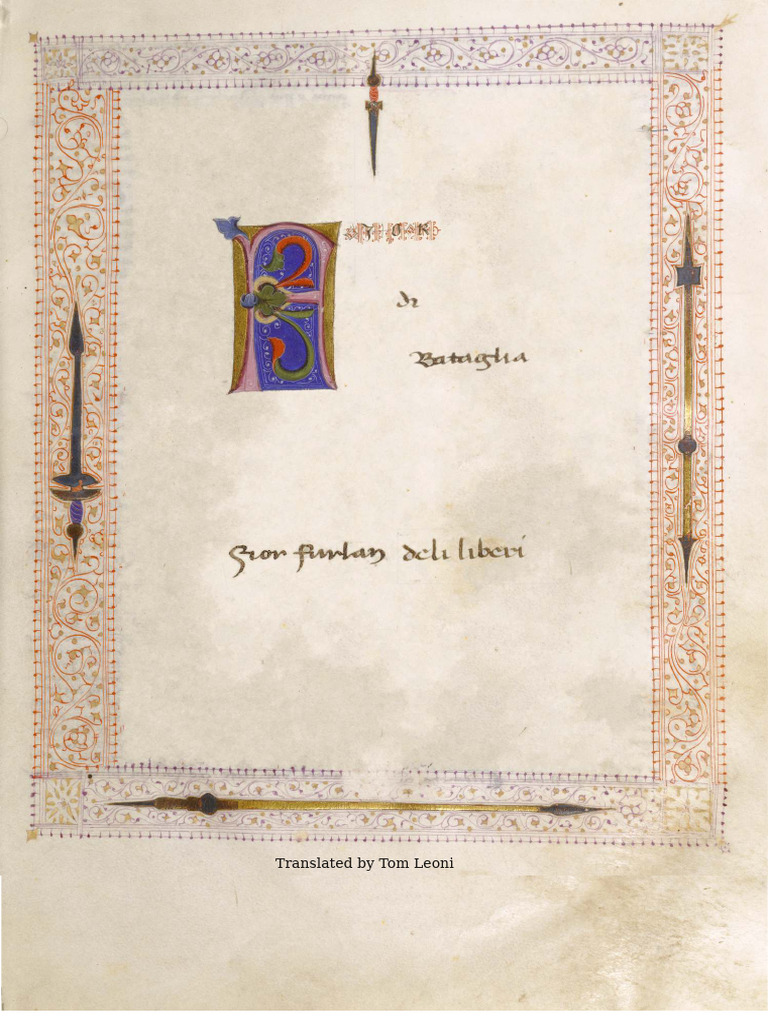 FIOR
di
Bataglia
Fior furlan deli liberi
Translated by Tom Leoni